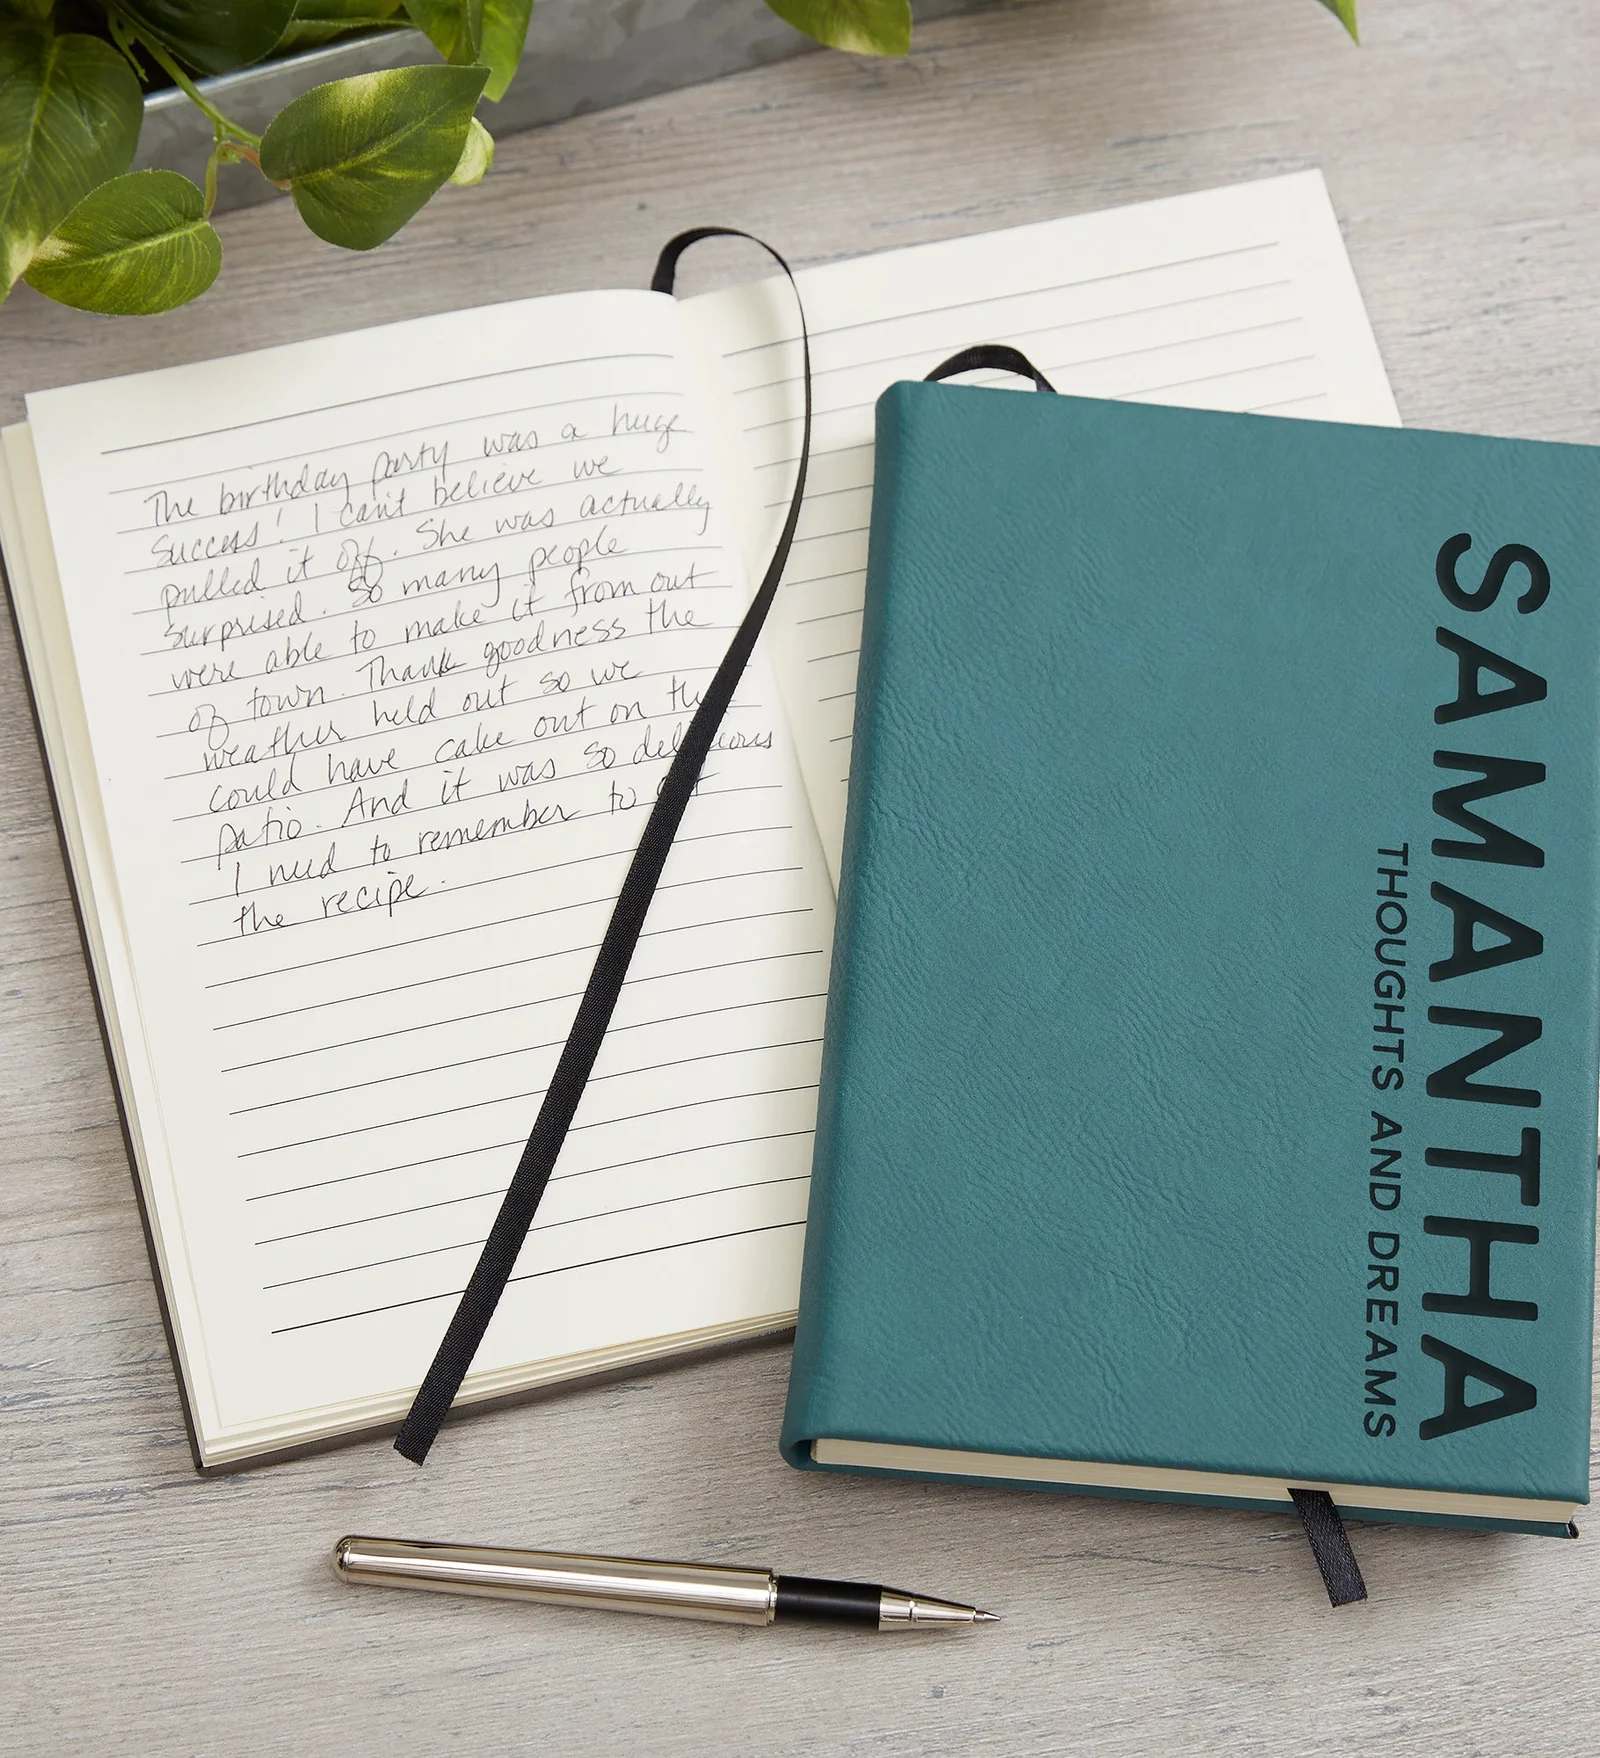 The birthday party was a huge
success! I can't believe we
pulled it off. She was actually
surprised. So many people
were able to make it from out
of town. Thank goodness the
weather held out so we
could have cake out on the
patio. And it was so delicious
I need to remember to
the recipe.
SAMANTHA
THOUGHTS AND DREAMS